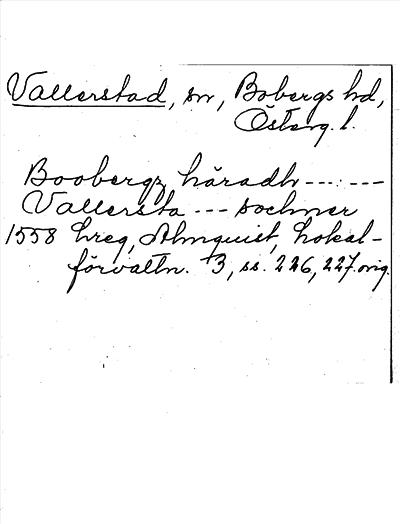 Vallerstad, sn, Bobergs hd,
Österg. l.
Boobergz häradh --- ---
Vallersta --- sochner
1558 hreg, Almquist, Lokal-
förvaltn. 3, ss. 226, 227. orig.